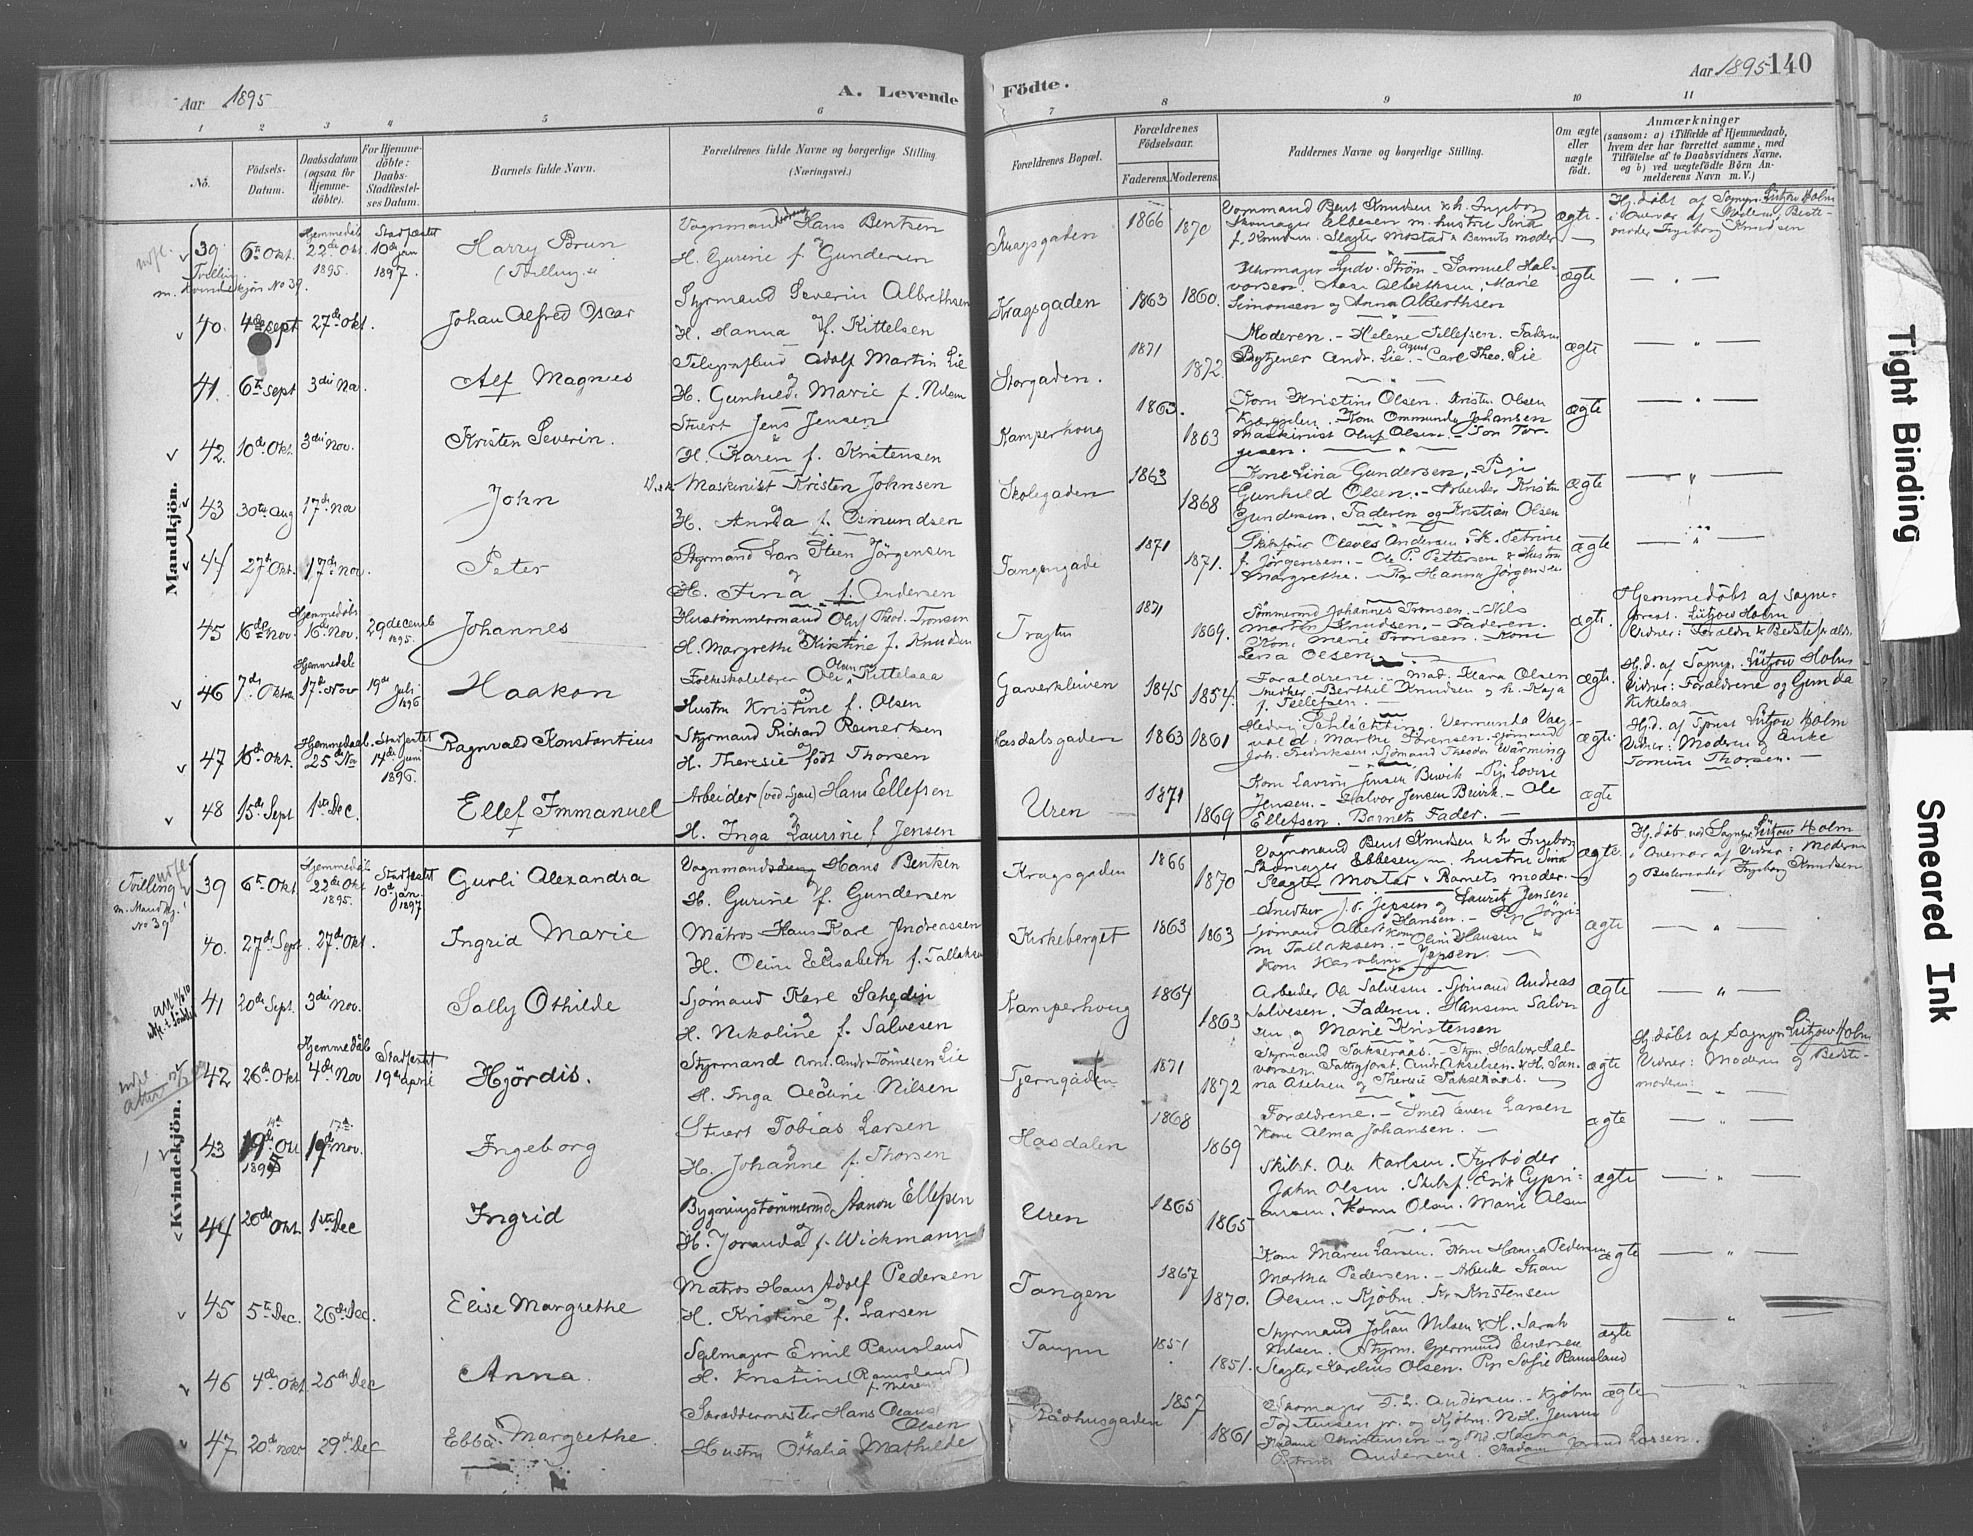 Aar 1895
A. Levende
Födte.
Aar 1895 140
1 2 3 4 5 6 7 8 9 10 11
No.
Födsels-Datum.
Daabsdatum (ogsaa for Hjemmedöbte).
For Hjemmedöbte: Daabs-Stadfæstelses Datum.
Barnets fulde Navn.
Forældrenes fulde Navne og borgerlige Stilling (Næringsvei.)
Forældrenes Bopæl.
Forældrenes Födselsaar.
Faderens. Moderens.
Faddernes Navne og borgerlige Stilling.
Om ægte eller uægte födt.
Anmærkninger
(saasom: a) i Tilfælde af Hjemmedaab, hvem der har forrettet samme, med Tilföielse af to Daabsvidners Navne, og b) ved uægtefödte Börn Anmelderens Navn m. V.)
Mandkjön.
39 6te Okt. Hjemmedøb 22de Okt. 1895. Stadfæstet 10de jan 1897. Harry Brun Vognmand Hans Bentsen
Tvilling m. Kvindekjön No 39. (Tvilling) H. Gurine f. Gundersen
Kragsgaden 1866 1870 Vognmand Bent Knudsen & h. Ingeborg
Skomager Ebbesen m. hustru Sina
f. Knudsen. Slagter Mostad & Barnets moder
ægte. Hj. døbt af Sognpr. Lützow Holm
i Overvær af Moderen, Bedstemoder Ingeborg Knudsen
40. 4de sept 27de Okt. Johan Alfred Oscar Styrmand Severin Albrethsen
H. Hanna f. Kittelsen
Kragsgaden 1863 1860. Uhrmager Ludv. Strøm - Samuel Halvorsen. Aase Alberthsen, Marie
Simonsen og Anna Alberthsen
ægte
41. 6te sept 3die No. Alf Magnus Telegrafbud Adolf Martin Lie
H. Gunhild Marie f. Nilsen
Storgaden. 1871 1872. Moderen. - Helene Tellefsen. Faderen
Andr. Lie. - Carl Theo. Lie
ægte
42. 10de Okt. 3die Nov. Kristen Severin. Stuert Jens Jensen
H. Karen f. Kristensen
Kamperhoug 1863. 1863 Kone Kristine Olsen. Kristen Olsen
Kone Ommunda Johansen
Maskinist Oluf Olsen. - Ton Torjesen.
ægte
43 30te aug 17de No John Maskinist Kristen Johnsen
H. Anna f. Osmundsen
Skolegaden 1863 1868 Kone Lina Gundersen, Pige
Gunhild Olsen. - Arbeider Kristen
Gundersen. Faderen og Kristian Olsen
ægte
44 27de Okt. 17de nov. Peter Styrmand Lars Steen Jörgensen
H. Fina f. Andersen
Tangengade 1871 1871. Skibsfører Olaves Andersen & K. Petrine
f. Jörgensen. - Ole P. Pettersen & Hustru
Margrethe. - Pige Hanna Jörgensen
ægte
45 16de Nov. Hjemmedøbt 16de Nov. 29 decemb 1895. Johannes Hustømmermand Oluf Theod. Tronsen
H. Margrethe Kirstine f. Knudsen
1871 1869. Tømmermd Johannes Tronsen. - Nils
Martin Knudsen. - Faderen.
Kone Marie Tronsen. Kone
Lena Olsen
ægte. Hjemmedøbt af Sognepræst. Lützow Holm
Vidner: Forældre & Bedsteforældr.
46 7de Oktbr Hjemmedøb 17de Nov 19de Juli 1896 Haakon Folkeskolelærer Ole Olsen Kittelsaa
Hustru Kristine f. Olsen
Garverkleiven 1845 1854. Forældrene - Mad. Klara Olsen
Snedker Berthel Knudsen og h. Kaja
f. Tellefsen.
ægte. H.d. af Sognp. Lützow Holm
Vidner: Forældrene og Gunda
47 16de Okt. Hjemmedaab. 25de No Stadfæstet 14de Juni 1896. Ragnvald Konstantius Styrmand Richard Reinertsen
H. Theresie født Thorsen
Hasdalsgaden 1863 1861 Hedvig Schlachting. Vermunda
Marthe Sørensen. Sjømand
Joh. Fredriksen. Sjømand Theodor Wärming
ægte. Hj.d. af Spræst Lützow Holm
Vidner: Moderen og Enke
Tomine Thorsen.
48 15de Sept 1ste Dec. Ellef Immanuel Arbeider (ved Sjøen) Hans Ellefsen
H. Inga Laurine f Jensen
Uren 1871 1869 Kone Lavine Jensen Buvik - Pige Lovise
Jensen. - Halvor Jensen Buvik. - Ole
Ellefsen. Barnets Fader.
ægte
Kvindekjön.
Tvilling m. Mandkj. No 39
39 6te Okt Hjemmedøb 22de Okt 1895. Stadfæstet 10de jan 1897 Gurli Alexandra Vognmand Hans Bentsen
H. Gurine f. Gundersen
Kragsgaden 1866 1870 Vognmand Bent Knudsen & h. Ingeborg
Skomager Ebbesen m. hustru Sina
Slagter Mostad & Barnets moder.
ægte. Hj. døbt ved Sognepr. Lützow Holm
i Overvær af Vidner: Moderen
og Bestemoder Ingeborg Knudsen
40. 27de Sept. 27de Okt. Ingrid Marie Matros Hans Karl Andreassen
H. Oline Elisabeth f. Tallaksen
Kirkeberget 1863 1863 Snedker J. P. Jepsen og Laurits Jensen
Sjømand Albert Hansen. - Per Jørgen
Tallaksen. - Kone Oline Hansen &
Kone Karoline Jepsen.
ægte
41 20de Sept. 3die Nov. Sally Othilde Sjømand Karl Schødin
H. Nikoline f. Salvesen
Kamperhoug 1864 1863 Arbeider Ole Salvesen - Sjømand Andreas
Salvesen. Faderen. Hansine Salvesen og Marie Kristensen
ægte
42 26de Okt Hjemmedøb 4de Nov Stadfæstet 19de april Hjördis. Styrmand Arnt Andr. Tönnesen Lie
H. Inga Aldine Nilsen
Tjerngaden 1871 1872 Styrmand Takseraas. - Styrm. Halvor Halvorsen. Fattigforst. Andr. Akselsen & H. Sanna Axelsen og Therese Takseraas.
ægte Hj. døbt af Sognpr. Lützow Holm
Vidner: Moderen og Bestemoder:
43 19de Okt 1895 17de 19de Nov. Ingeborg Stuert Tobias Larsen
H. Johanne f. Thorsen
Hasdalen 1868 1869 Forældrene. - Smed Even Larsen
Kone Alma Johansen.
ægte
44 26de Okt 1ste Dec Ingrid Bygningstømmermd Aanon Ellefsen
H. Joranda f. Wickmann
Uren 1865 1865 Skibst. Ole Karlsen. Fyrbøder
John Olsen. Skibsf. Erik Cypriansen. Kone Olsen. Marie Olsen
ægte
45 5te Dec. 26de Dec. Elise Margrethe Matros Hans Adolf Pedersen
H. Kristine f. Larsen
Tangen 1867 1870. Kone Maren Larsen. Kone Hanna Pedersen
Martha Pedersen. - Arbeider Johan
Olsen. - Kjøbm. Kr. Kristensen
ægte
46 4de Okt 26de Dec Anna. Seilmager Emil Ramsland
H. Kristine (Ramsland) f. Nilsen
Tangen 1851 1851. Styrmand Johan Nilsen & H. Sarah
Nilsen. Styrm. Gjermund Einersen
Slagter Karelius Olsen. Pige Sofie Ramsland
ægte
47 20de nov 29de Dec Ebba Margrethe. Skræddermester Hans Olaus Olsen
Hustru Othalia Mathilde
Rådhusgaden 1857 1861 Skomager F. L. Andersen. - Kjøbm
Torstensen jr. og Kjøbm. N. H. Jensen
Madam Christensen. og Md. Hanna
Andersene. Madam Jorand Larsen.
ægte
Tight Binding
Smeared Ink